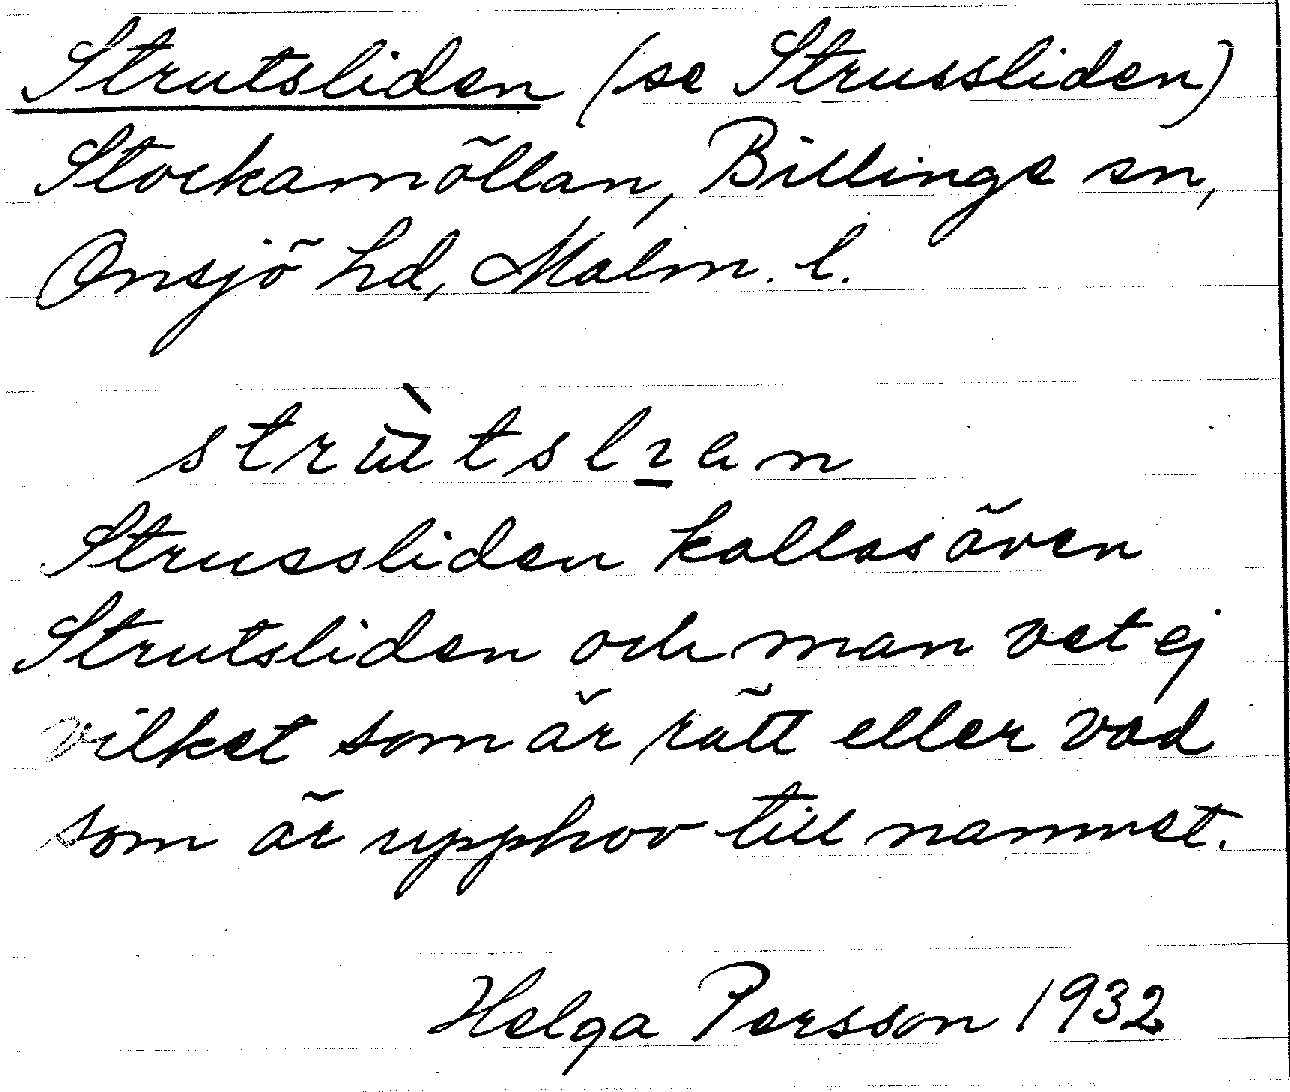 Strutsliden (se Strussliden)
Stockamöllan, Billinge sn,
Onsjö hd, Malm. l.
Strussliden kallas även
Strutsliden och man vet ej
vilket som är rätt eller vad
som är upphov till namnet.
Helga Persson 1932